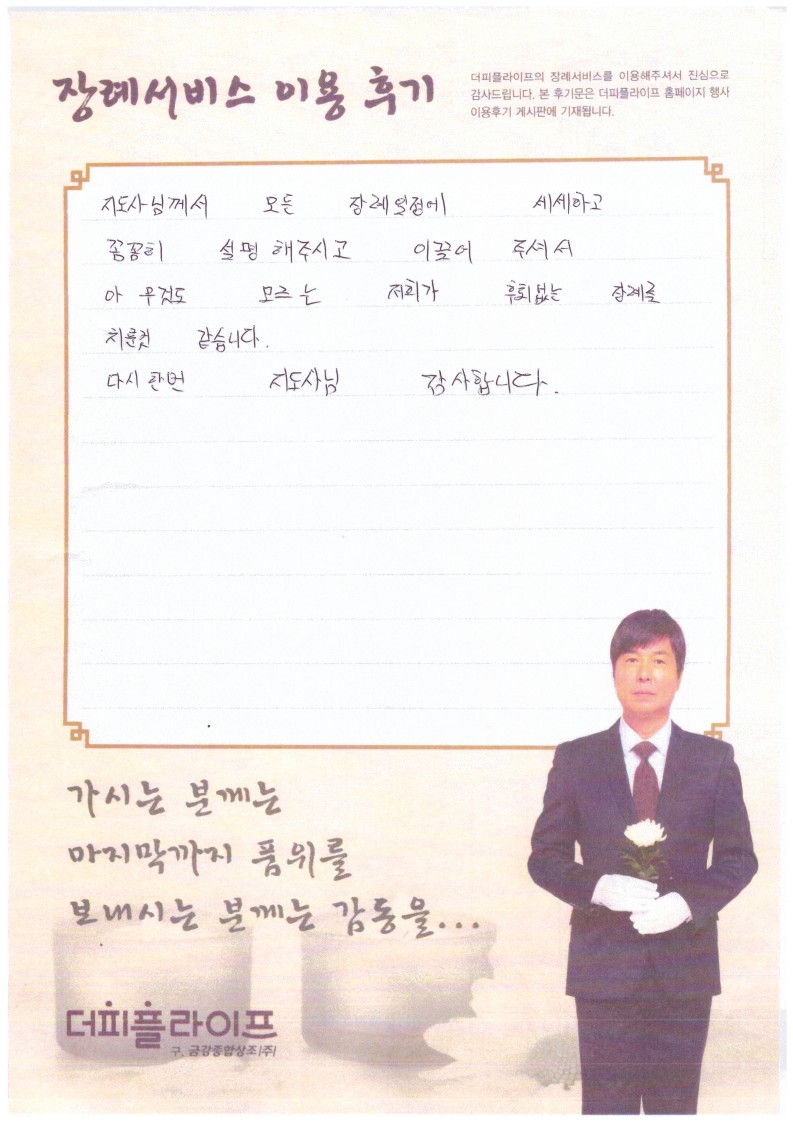 장례서비스 이용 후기
더피플라이프의 장례서비스를 이용해주셔서 진심으로
감사드립니다. 본 후기문은 더피플라이프 홈페이지 행사
이용후기 게시판에 기재됩니다.
지도사님께서 모든 장례일정에 세세하고
꼼꼼히 설명 해주시고 이끌어 주셔서
아무것도 모르는 저희가 후회없는 장례를
치룬것 같습니다.
다시 한번 지도사님 감사합니다.
가시는 분께는
마지막까지 품위를
보내시는 분께는 감동을...
더피플라이프
구. 금강종합상조(주)